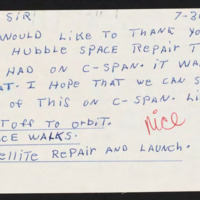 SIR 7-3
WOULD LIKE TO THANK YO
HUBBLE SPACE REPAIR T
HAD ON C-SPAN. IT WA
AT. I HOPE THAT WE CAN S
OF THIS ON C-SPAN. LI
T OFF TO ORBIT.
CE WALKS. nice
ELLITE REPAIR AND LAUNCH.